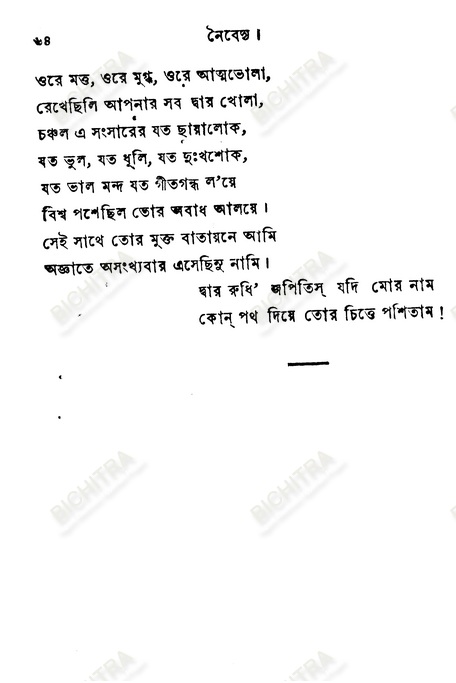 ৬৪
নৈবেদ্য।
ওরে মত্ত, ওরে মুগ্ধ, ওরে আত্মভোলা,
রেখেছিলি আপনার সব দ্বার খোলা,
চঞ্চল এ সংসারের যত ছায়ালোক,
যত ভুল, যত ধূলি, যত দুঃখশোক,
যত ভাল মন্দ যত গীতগন্ধ ল'য়ে
বিশ্ব পশেছিল তোর অবাধ আলয়ে।
সেই সাথে তোর মুক্ত বাতায়নে আমি
অজ্ঞাতে অসংখ্যবার এসেছিনু নামি।
দ্বার রুধি' জপিতিস্ যদি মোর নাম
কোন্ পথ দিয়ে তোর চিত্তে পশিতাম!
BICHITRA
BICHITRA
BICHITRA
BICHITRA
BICHITRA
BICHITRA
BICHITRA
BICHITRA